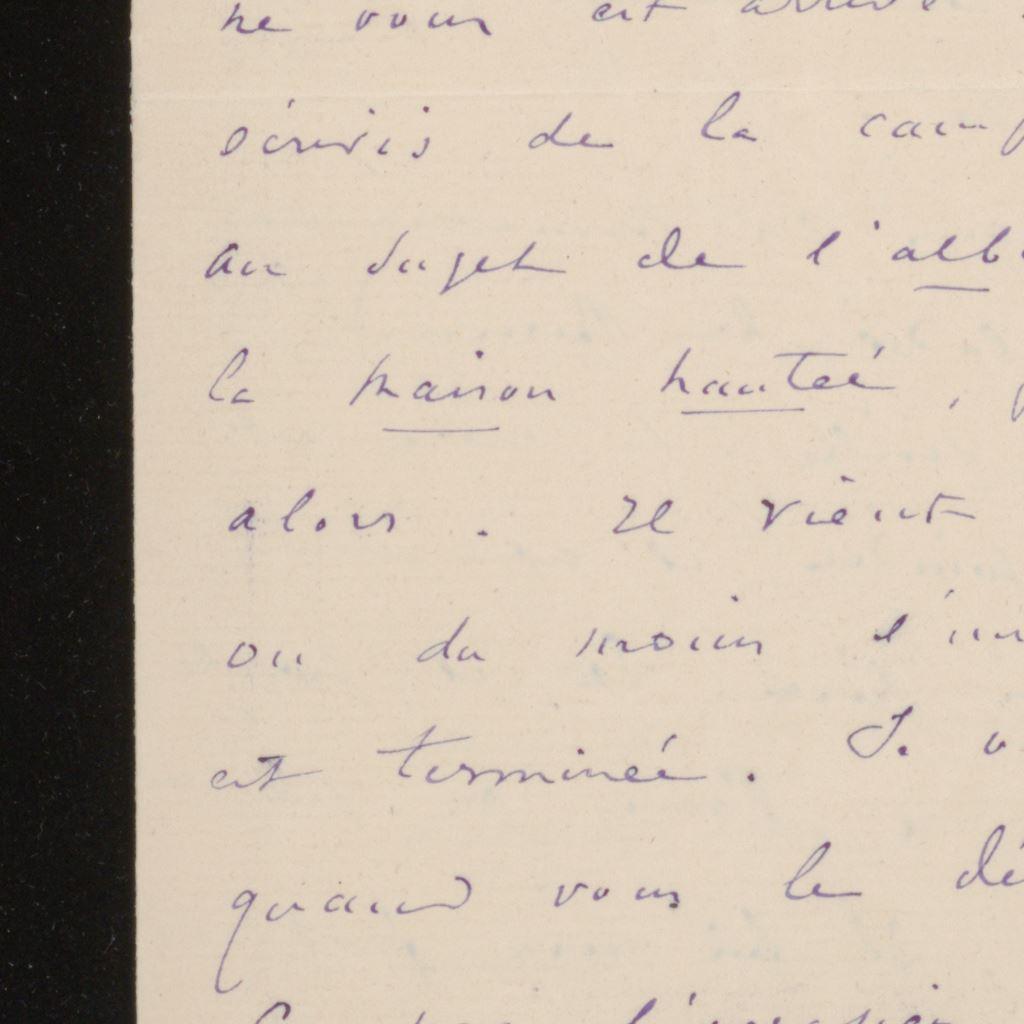 ne vous est arrivé
écrivis de la camp
au sujet de l'alb
la maison hantée,
alors. Il vient
ou du moins l'im
est terminée. Si v
quand vous le dé